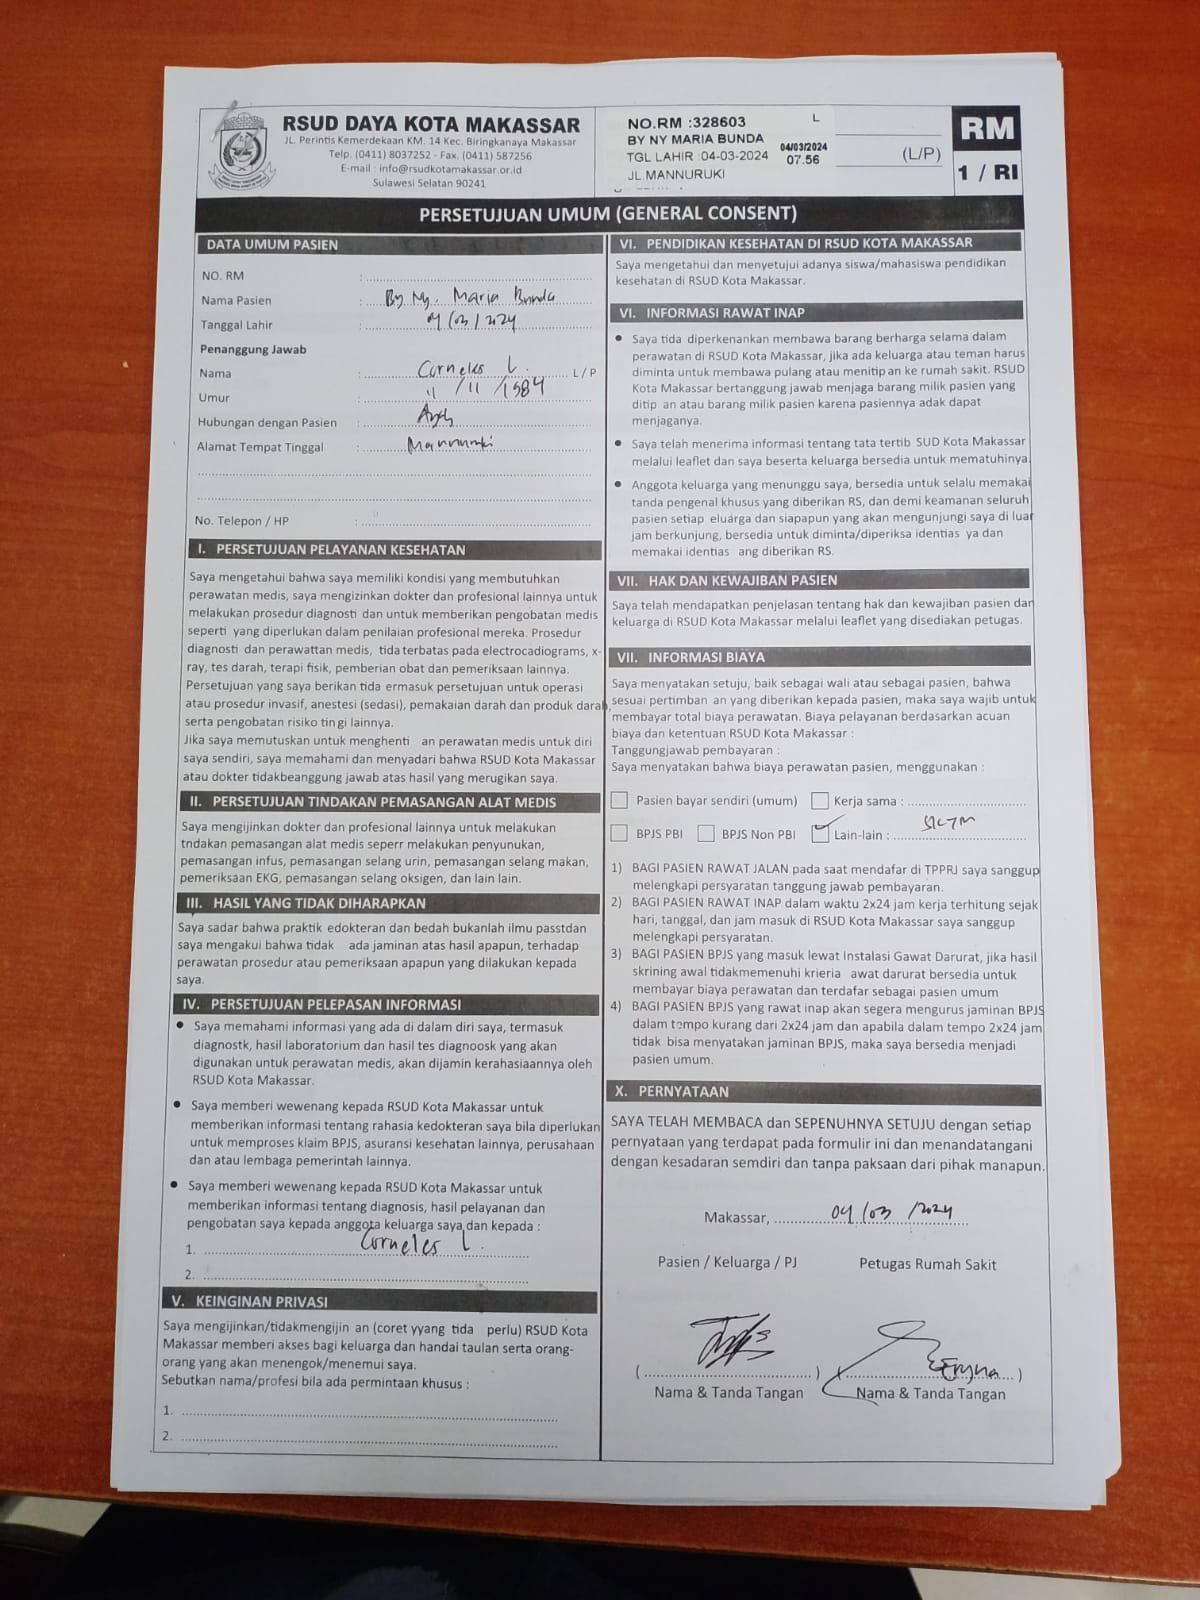 RSUD DAYA KOTA MAKASSAR
JL. Perintis Kemerdekaan KM. 14 Kec. Biringkanaya Makassar
Telp. (0411) 8037252 - Fax. (0411) 587256
E-mail : info@rsudkotamakassar.or.id
Sulawesi Selatan 90241
NO.RM :328603 L
BY NY MARIA BUNDA
TGL LAHIR :04-03-2024
JL MANNURUKI
04/03/2024
07.56
(L/P)
RM
1 / RI
PERSETUJUAN UMUM (GENERAL CONSENT)
DATA UMUM PASIEN
NO. RM :
Nama Pasien : By Ny. Maria Bunda
Tanggal Lahir : 04/03/2024
Penanggung Jawab
Nama : Corneles L. L / P
Umur : 11/11/1984
Hubungan dengan Pasien : Ayah
Alamat Tempat Tinggal : Mannuruki
No. Telepon / HP :
I. PERSETUJUAN PELAYANAN KESEHATAN
Saya mengetahui bahwa saya memiliki kondisi yang membutuhkan
perawatan medis, saya mengizinkan dokter dan profesional lainnya untuk
melakukan prosedur diagnosti dan untuk memberikan pengobatan medis
seperti yang diperlukan dalam penilaian profesional mereka. Prosedur
diagnosti dan perawattan medis, tida terbatas pada electrocadiograms, x-
ray, tes darah, terapi fisik, pemberian obat dan pemeriksaan lainnya.
Persetujuan yang saya berikan tida ermasuk persetujuan untuk operasi
atau prosedur invasif, anestesi (sedasi), pemakaian darah dan produk darah,
serta pengobatan risiko tin gi lainnya.
Jika saya memutuskan untuk menghenti an perawatan medis untuk diri
saya sendiri, saya memahami dan menyadari bahwa RSUD Kota Makassar
atau dokter tidakbeanggung jawab atas hasil yang merugikan saya.
II. PERSETUJUAN TINDAKAN PEMASANGAN ALAT MEDIS
Saya mengijinkan dokter dan profesional lainnya untuk melakukan
tndakan pemasangan alat medis seperr melakukan penyunukan,
pemasangan infus, pemasangan selang urin, pemasangan selang makan,
pemeriksaan EKG, pemasangan selang oksigen, dan lain lain.
III. HASIL YANG TIDAK DIHARAPKAN
Saya sadar bahwa praktik edokteran dan bedah bukanlah ilmu passtdan
saya mengakui bahwa tidak ada jaminan atas hasil apapun, terhadap
perawatan prosedur atau pemeriksaan apapun yang dilakukan kepada
saya.
IV. PERSETUJUAN PELEPASAN INFORMASI
• Saya memahami informasi yang ada di dalam diri saya, termasuk
diagnostk, hasil laboratorium dan hasil tes diagnoosk yang akan
digunakan untuk perawatan medis, akan dijamin kerahasiaannya oleh
RSUD Kota Makassar.
• Saya memberi wewenang kepada RSUD Kota Makassar untuk
memberikan informasi tentang rahasia kedokteran saya bila diperlukan
untuk memproses klaim BPJS, asuransi kesehatan lainnya, perusahaan
dan atau lembaga pemerintah lainnya.
• Saya memberi wewenang kepada RSUD Kota Makassar untuk
memberikan informasi tentang diagnosis, hasil pelayanan dan
pengobatan saya kepada anggota keluarga saya dan kepada :
1. Corneles L.
2.
V. KEINGINAN PRIVASI
Saya mengijinkan/tidakmengijin an (coret yyang tida perlu) RSUD Kota
Makassar memberi akses bagi keluarga dan handai taulan serta orang-
orang yang akan menengok/menemui saya.
Sebutkan nama/profesi bila ada permintaan khusus :
1.
2.
VI. PENDIDIKAN KESEHATAN DI RSUD KOTA MAKASSAR
Saya mengetahui dan menyetujui adanya siswa/mahasiswa pendidikan
kesehatan di RSUD Kota Makassar.
VI. INFORMASI RAWAT INAP
• Saya tida diperkenankan membawa barang berharga selama dalam
perawatan di RSUD Kota Makassar, jika ada keluarga atau teman harus
diminta untuk membawa pulang atau menitip an ke rumah sakit. RSUD
Kota Makassar bertanggung jawab menjaga barang milik pasien yang
ditip an atau barang milik pasien karena pasiennya adak dapat
menjaganya.
• Saya telah menerima informasi tentang tata tertib SUD Kota Makassar
melalui leaflet dan saya beserta keluarga bersedia untuk mematuhinya.
• Anggota keluarga yang menunggu saya, bersedia untuk selalu memakai
tanda pengenal khusus yang diberikan RS, dan demi keamanan seluruh
pasien setiap eluarga dan siapapun yang akan mengunjungi saya di luar
jam berkunjung, bersedia untuk diminta/diperiksa identias ya dan
memakai identias ang diberikan RS.
VII. HAK DAN KEWAJIBAN PASIEN
Saya telah mendapatkan penjelasan tentang hak dan kewajiban pasien dan
keluarga di RSUD Kota Makassar melalui leaflet yang disediakan petugas.
VII. INFORMASI BIAYA
Saya menyatakan setuju, baik sebagai wali atau sebagai pasien, bahwa
sesuai pertimban an yang diberikan kepada pasien, maka saya wajib untuk
membayar total biaya perawatan. Biaya pelayanan berdasarkan acuan
biaya dan ketentuan RSUD Kota Makassar :
Tanggungjawab pembayaran :
Saya menyatakan bahwa biaya perawatan pasien, menggunakan :
Pasien bayar sendiri (umum) Kerja sama :
BPJS PBI BPJS Non PBI Lain-lain :
1) BAGI PASIEN RAWAT JALAN pada saat mendafar di TPPRJ saya sanggup
melengkapi persyaratan tanggung jawab pembayaran.
2) BAGI PASIEN RAWAT INAP dalam waktu 2x24 jam kerja terhitung sejak
hari, tanggal, dan jam masuk di RSUD Kota Makassar saya sanggup
melengkapi persyaratan.
3) BAGI PASIEN BPJS yang masuk lewat Instalasi Gawat Darurat, jika hasil
skrining awal tidakmemenuhi krieria awat darurat bersedia untuk
membayar biaya perawatan dan terdafar sebagai pasien umum
4) BAGI PASIEN BPJS yang rawat inap akan segera mengurus jaminan BPJS
dalam tempo kurang dari 2x24 jam dan apabila dalam tempo 2x24 jam
tidak bisa menyatakan jaminan BPJS, maka saya bersedia menjadi
pasien umum.
X. PERNYATAAN
SAYA TELAH MEMBACA dan SEPENUHNYA SETUJU dengan setiap
pernyataan yang terdapat pada formulir ini dan menandatangani
dengan kesadaran semdiri dan tanpa paksaan dari pihak manapun.
Makassar, 04/03/2024
Pasien / Keluarga / PJ Petugas Rumah Sakit
Nama & Tanda Tangan Nama & Tanda Tangan